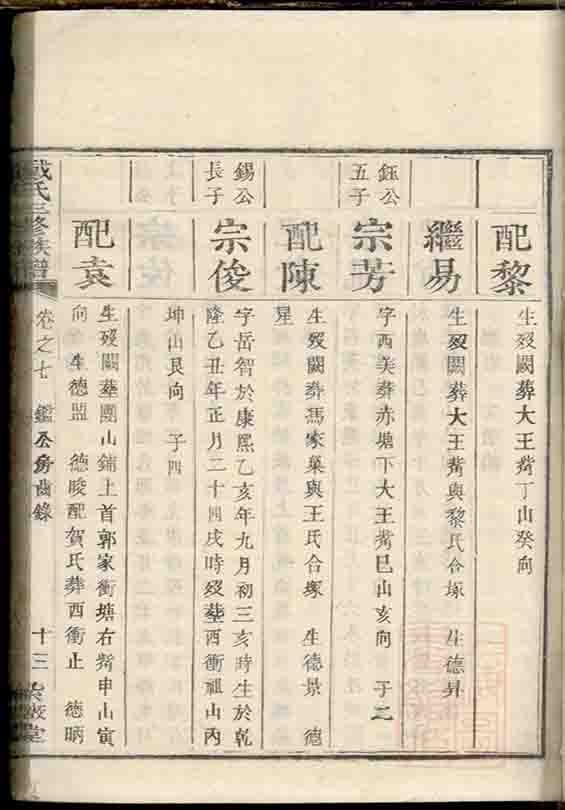 配黎
生歿闕葬大王觜丁山癸向
繼易
生歿闕葬大王觜與黎氏合塚 生德昇
鈺公
五子
宗芳
字西美葬赤塘下大王觜巳山亥向 子二
配陳
生歿闕葬馮家菓與王氏合塚 生德景 德
星
錫公
長子
宗俊
字岳智於康熙乙亥年九月初三亥時生於乾
隆乙丑年正月二十四戌時歿塟西衝祖山丙
坤山艮向 子四
配袁
生歿闕塟團山鋪上首郭家衝塘右觜申山寅
向 生德盟 德畯配賀氏葬西衝止 德昞
戴氏三修族譜
卷之七 鑑公房齒錄
十三